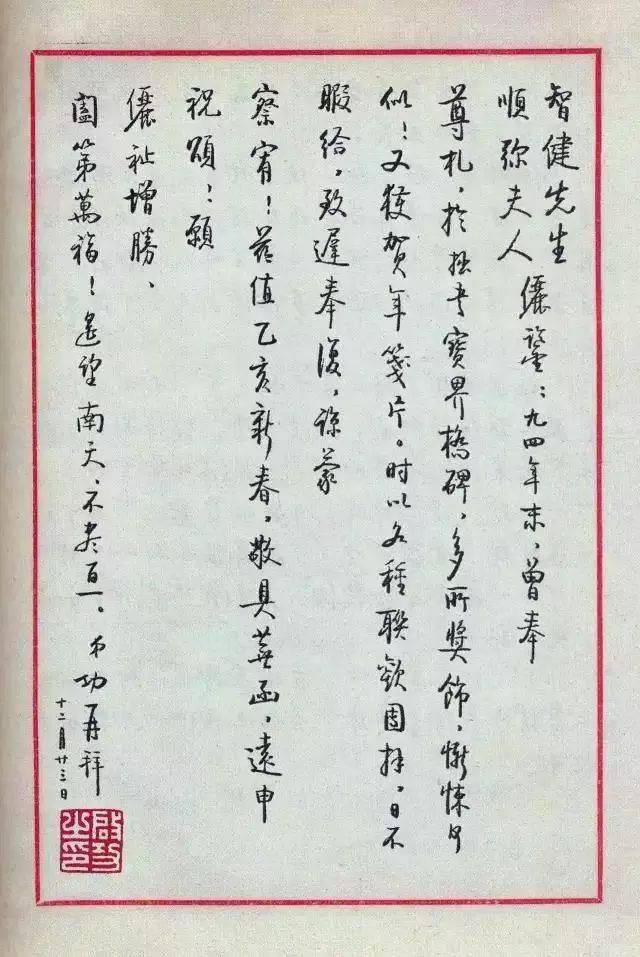 智健先生
順弥夫人儷鑒：九四年末，曾奉
尊札，於拙書寶界橋碑，多所獎飾，慚悚何
似！又獲賀年箋片。時以各種聯歡團拜，日不
暇給，致遲奉復，諒蒙
察宥！茲值乙亥新春，敬具蕪函，遠申
祝頌；願
儷祉增勝、
闔第萬福！遙望南天、不盡百一。弟功再拜
十二月廿三日
啟功之印